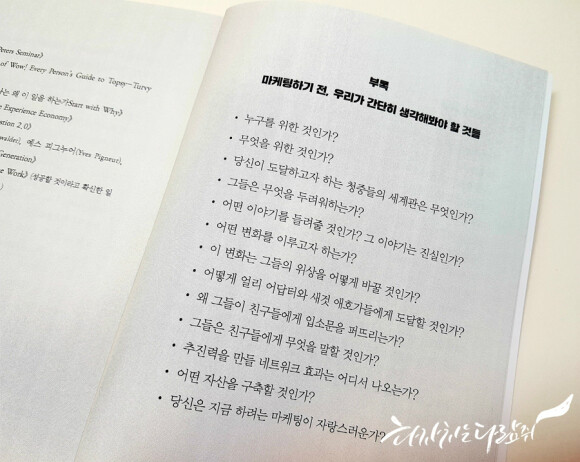 eters Seminar》
of Wow! Every Person's Guide to Topsy—Turvy
는 왜 이 일을 하는가Start with Why》
Experience Economy》
stion 2.0》
walder), 예스 피그누어(Yves Pigneur),
Generation》
e Work》 (성공할 것이라고 확신한 일
부록
마케팅하기 전, 우리가 간단히 생각해봐야 할 것들
• 누구를 위한 것인가?
• 무엇을 위한 것인가?
• 당신이 도달하고자 하는 청중들의 세계관은 무엇인가?
• 그들은 무엇을 두려워하는가?
• 어떤 이야기를 들려줄 것인가? 그 이야기는 진실인가?
• 어떤 변화를 이루고자 하는가?
• 이 변화는 그들의 위상을 어떻게 바꿀 것인가?
• 어떻게 얼리 어답터와 새것 애호가들에게 도달할 것인가?
• 왜 그들이 친구들에게 입소문을 퍼뜨리는가?
• 그들은 친구들에게 무엇을 말할 것인가?
• 추진력을 만들 네트워크 효과는 어디서 나오는가?
• 어떤 자산을 구축할 것인가?
• 당신은 지금 하려는 마케팅이 자랑스러운가?